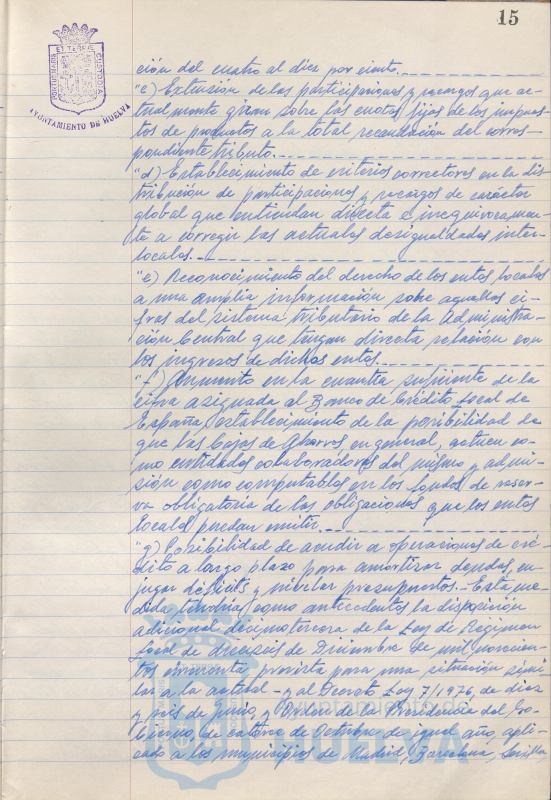 15
PORTUS MARIS ET TERRÆ CUSTODIA
AYUNTAMIENTO DE HUELVA
ción del cuatro al diez por ciento.
"c) Extensión de las participaciones y recargos que ac-
tualmente giran sobre las cuotas fijas de los impues-
tos de productos a la total recaudación del corres-
pondiente tributo.
"d) Establecimiento de criterios correctores en la dis-
tribución de participaciones y recargos de carácter
global que entiendan directa e inequívocamen-
te a corregir las actuales desigualdades inter-
locales.
"e) Reconocimiento del derecho de los entes locales
a una amplia información sobre aquellas ci-
fras del sistema tributario de la Administra-
ción Central que tengan directa relación con
los ingresos de dichos entes.
"f) Aumento en la cuantía suficiente de la
cifra asignada al Banco de Crédito Local de
España, establecimiento de la posibilidad de
que las Cajas de Ahorros en general, actuen co-
mo entidades colaboradoras del mismo y admi-
sión como computables en los fondos de reser-
va obligatoria de las obligaciones que los entes
locales puedan emitir.
"g) Posibilidad de acudir a operaciones de cré-
dito a largo plazo para amortizar deudas, en-
jugar déficits y nivelar presupuestos. Esta me-
dida tendría como antecedentes la disposición
adicional decimotercera de la Ley de Régimen
Local de dieciseis de Diciembre de mil novecien-
tos cincuenta prevista para una situación simi-
lar a la actual - y al Decreto Ley 7/1976, de diez
y seis de Junio, y Orden de la Presidencia del Go-
bierno, de catorce de Octubre de igual año, apli-
cado a los municipios de Madrid, Barcelona, Sevilla,
Ayuntamiento de
HUELVA